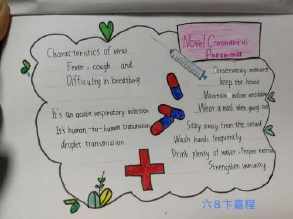 Novel Coronavirus
Pneumonia
Characteristics of virus
Fever, cough and
Difficulty in breathing
It's an acute respiratory infection
It's human-to-human transmission
droplet transmission
keep the house
Maintain indoor ventilation
Wear a mask when going out
Stay away from the crowd
Wash hands frequently
Drink plenty of water
Strengthen immunity